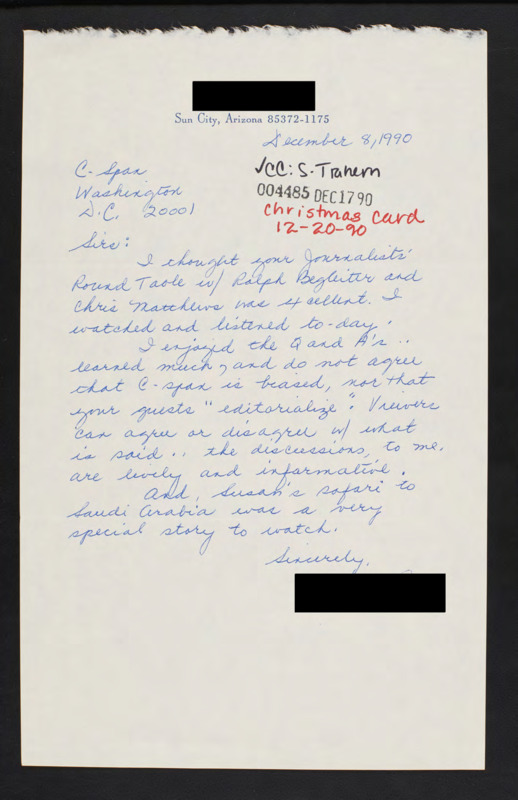 Sun City, Arizona 85372-1175
December 8, 1990
C-Span
Washington
D.C. 20001
✓CC: S. Trahern
004485 DEC1790
Christmas card
12-20-90
Sirs:
I thought your Journalists'
Round Table w/ Ralph Begleiter and
Chris Matthews was excellent. I
watched and listened to-day.
I enjoyed the Q and A's ..
learned much, and do not agree
that C-span is biased, nor that
your guests "editorialize". Viewers
can agree or disagree w/ what
is said .. the discussions, to me,
are lively and informative.
And, Susan's safari to
Saudi Arabia was a very
special story to watch.
Sincerely,